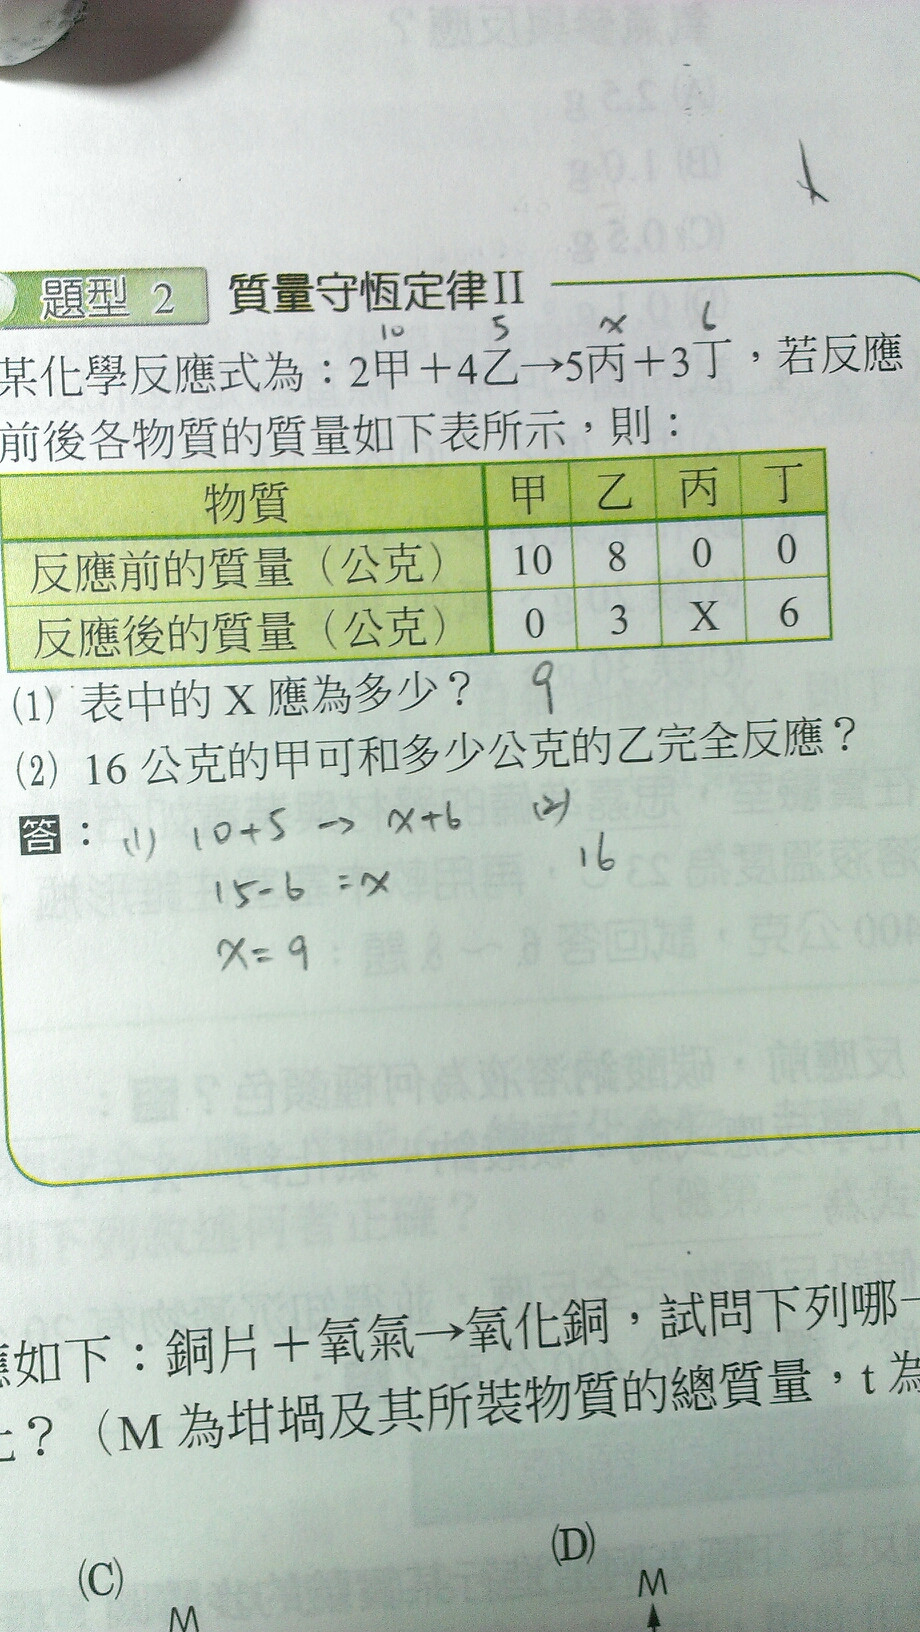 題型 2 質量守恆定律II
10 5 x 6
某化學反應式為：2甲＋4乙→5丙＋3丁，若反應
前後各物質的質量如下表所示，則：
物質 甲 乙 丙 丁
反應前的質量（公克） 10 8 0 0
反應後的質量（公克） 0 3 X 6
(1) 表中的 X 應為多少？ 9
(2) 16 公克的甲可和多少公克的乙完全反應？
答：(1) 10+5 → x+6 (2)
16
15-6 =x
x=9
應如下：銅片＋氧氣→氧化銅，試問下列哪一
？（M 為坩堝及其所裝物質的總質量，t 為
(C) (D)
M M